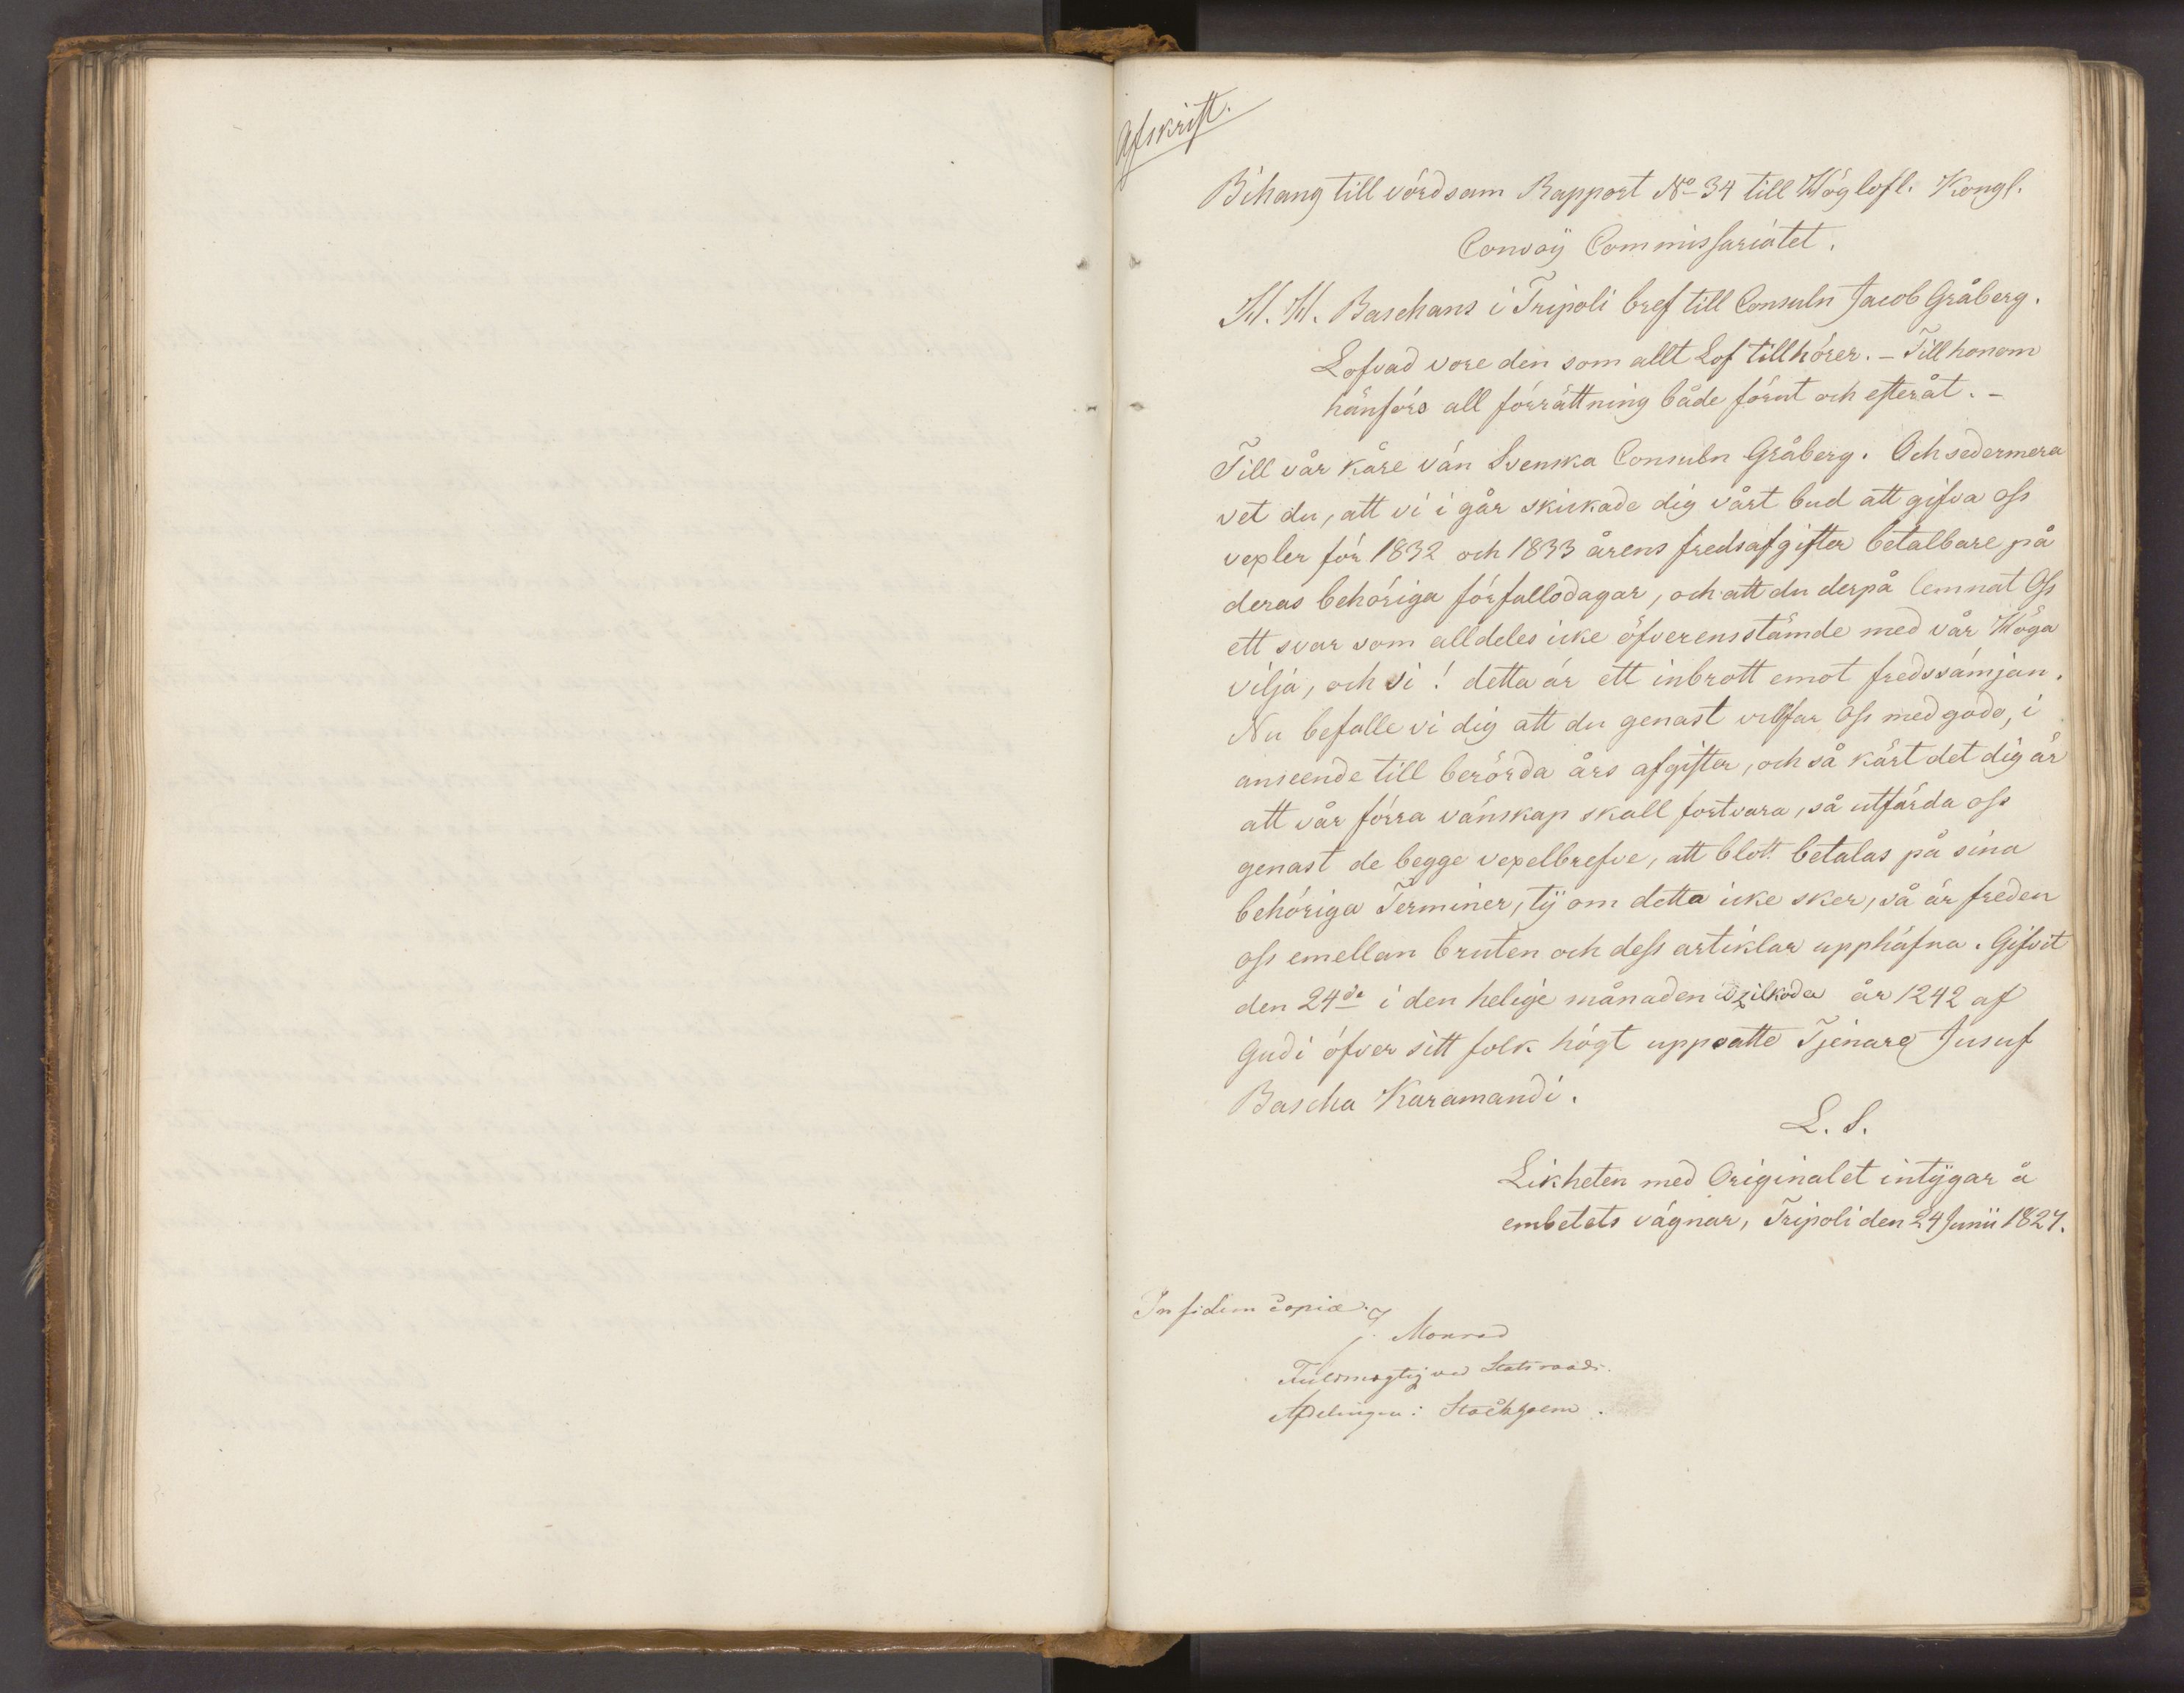 Afskrift.
Bihang till vördsam Rapport No 34 till Höglofl. Kongl.
Convoÿ Commissariatet.
H. H. Baschans i Tripoli bref till Consuln Jacob Gråberg.
Lofvad vore den som allt Lof tillhörer. – Till honom
hänförs all förrättning både förut och efteråt. –
Till vår käre vän Svenska Consuln Gråberg. Och sedermera
vet du, att vi i går skickade dig vårt bud att gifva oss
vexler för 1832 och 1833 årens fredsafgifter betalbare på
deras behöriga förfallodagar, och att du derpå lemnat Oss
ett svar som alldeles icke öfverensstämde med vår Höga
vilja, och si! detta är ett inbrott emot fredssämjan.
Nu befalle vi dig att du genast villfar Oss med godo, i
anseende till berörda års afgifter, och så kärt det dig är
att vår förra vänskap skall fortvara, så utfärda oss
genast de begge vexelbrefve, att blott betalas på sina
behöriga Terminer, tÿ om detta icke sker, så är freden
oss emellan bruten och dess artiklar upphäfna. Gifvit
den 24de i den helige månaden Dzilkoda år 1242 af
Gudi öfver sitt folk högt uppsatte Tjenare Jusuf
Bascha Karamandi.
L. S.
Likheten med Originalet intÿgar å
embetets vägnar, Tripoli den 24 Junii 1827.
In fidem copiæ.
J. Monrad
Fuldmægtig ved Statsraads-
Afdelingen i Stockholm.